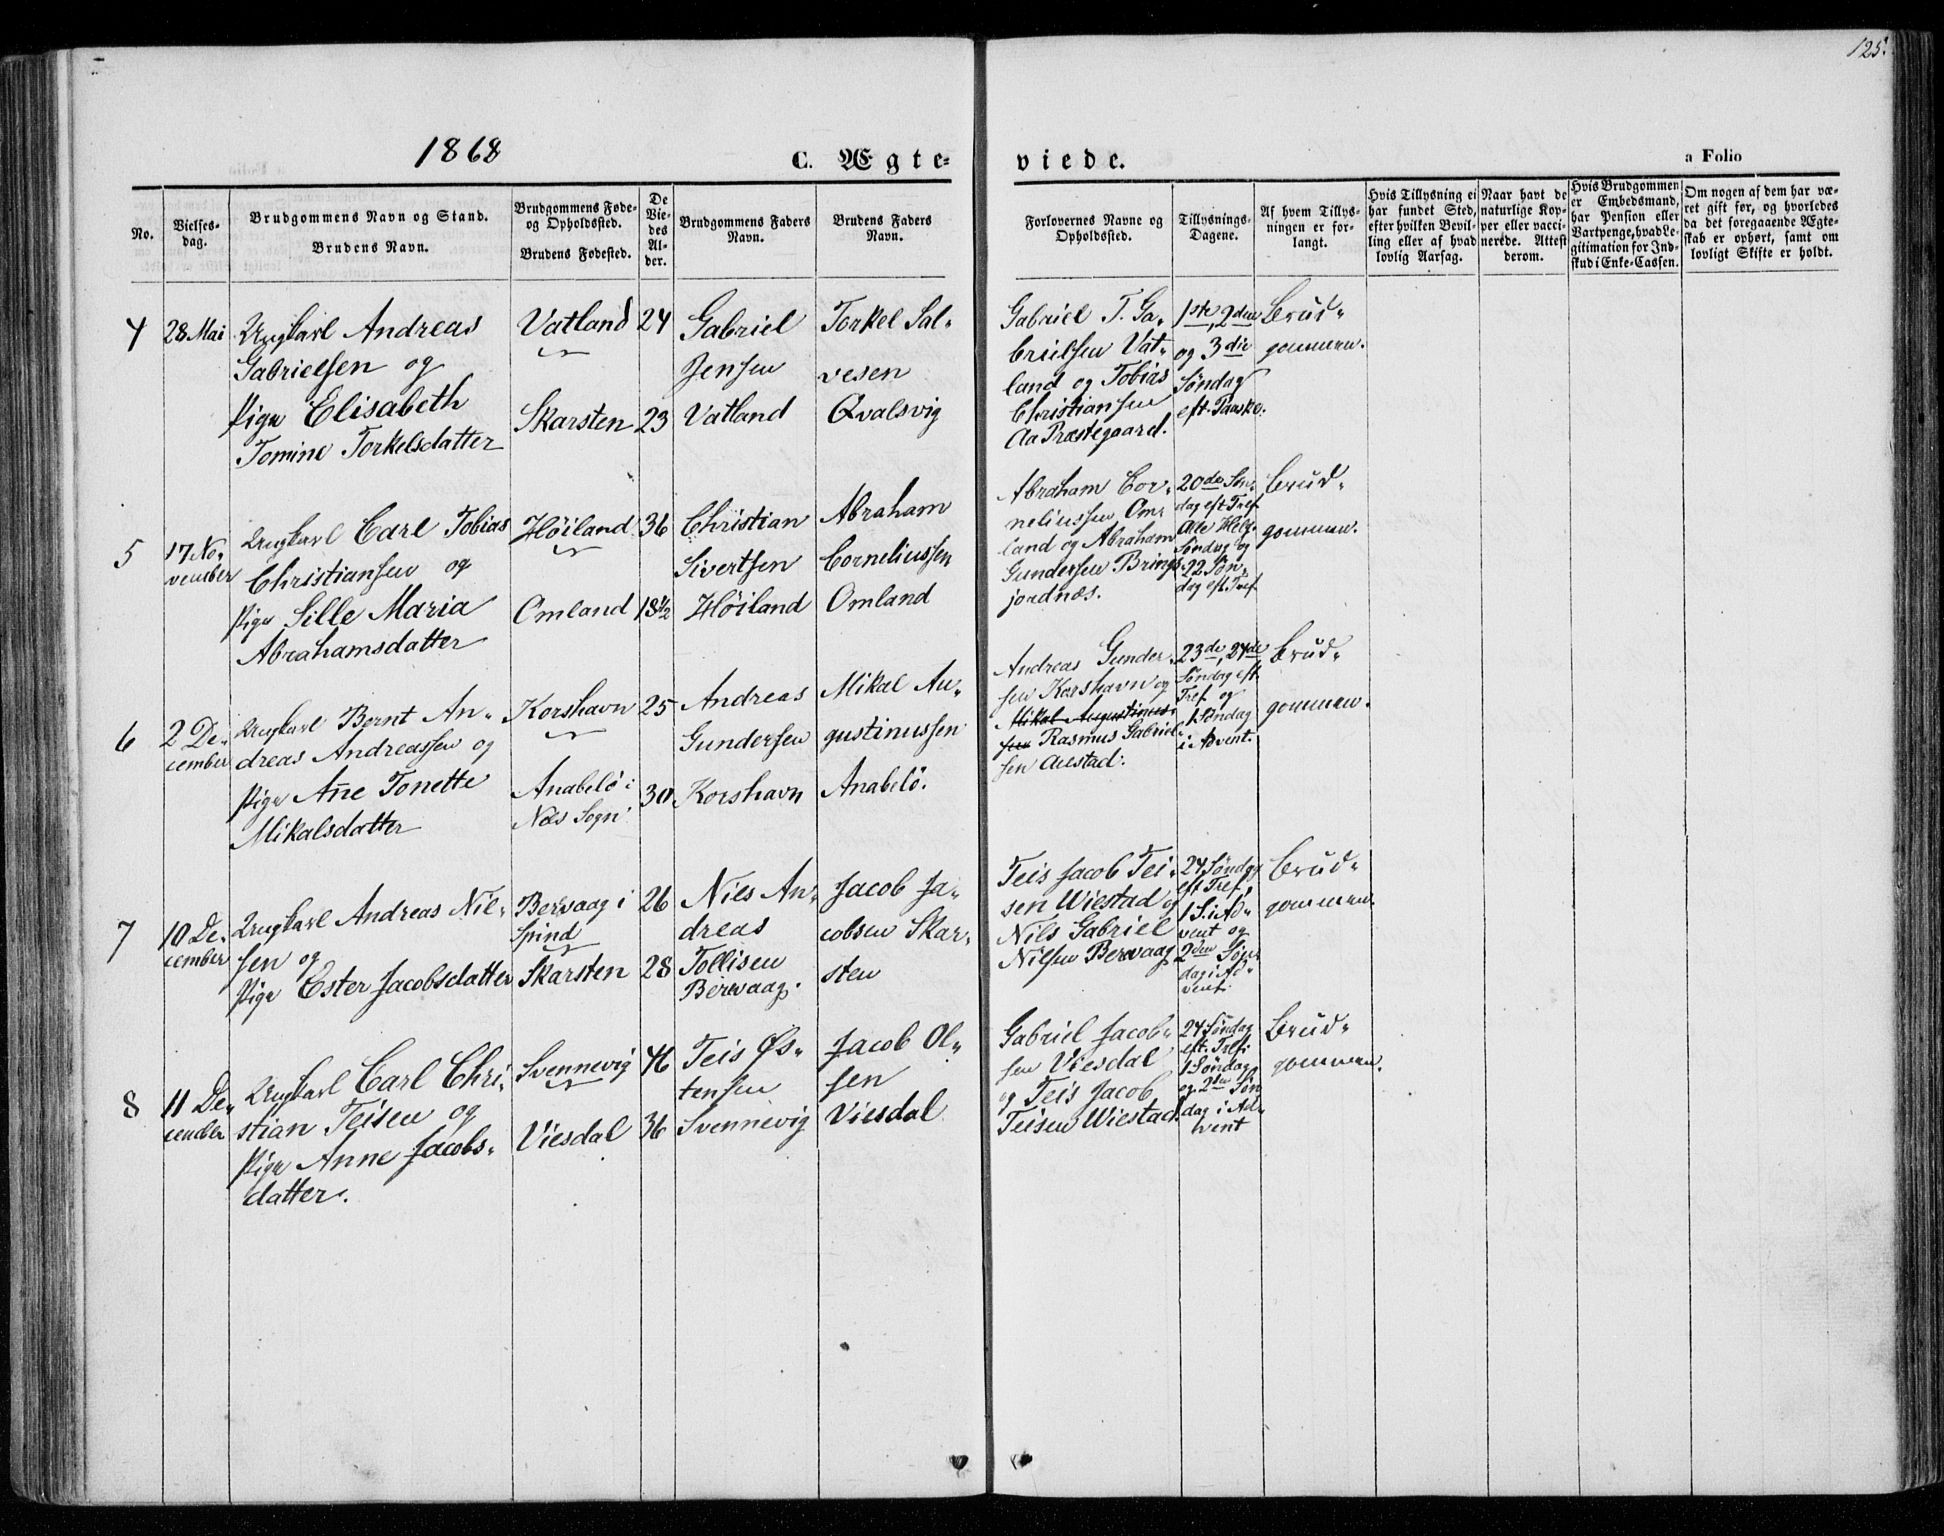 125.
1868
C. Ægte-
viede.
a Folio
No.
Vielses-
dag.
Brudgommens Navn og Stand.
Brudens Navn.
Brudgommens Føde-
og Opholdssted.
Brudens Fødested.
De
Vie-
des
Al-
der.
Brudgommens Faders
Navn.
Brudens Faders
Navn.
Forlovernes Navne og
Opholdssted.
Tillysnings-
Dagene.
Af hvem Tillys-
ningen er for-
langt.
Hvis Tillysning ei
har fundet Sted,
efter hvilken Bevil-
ling eller af hvad
lovlig Aarsag.
Naar havt de
naturlige Kop-
per eller vacci-
nerede. Attest
derom.
Hvis Brudgommen
er Embedsmand,
har Pension eller
Vartpenge, hvad Le-
gitimation for Ind-
skud i Enke-Cassen.
Om nogen af dem har væ-
ret gift før, og hvorledes
da det foregaaende Ægte-
skab er ophørt, samt om
lovligt Skifte er holdt.
4
28 Mai
Ungkarl Andreas
Gabrielsen og
Pige Elisabeth
Tomine Torkelsdatter
Vatland
Skarsten
24
23
Gabriel
Jensen
Vatland
Torkel Sal-
vesen
Qvalsvig
Gabriel T. Ga-
brielsen Vat-
land og Tobias
Christiansen
Aa Præstegaard.
1ste, 2den
og 3die
Søndag
eft. Paaske.
Brud-
gommen.
5
17 No-
vember
Ungkarl Carl Tobias
Christiansen og
Pige Sille Maria
Abrahamsdatter
Høiland
Omland
36
18 1/2
Christian
Sivertsen
Høiland
Abraham
Corneliussen
Omland
Abraham Cor-
neliussen Om-
land og Abraham
Gundersen Brings-
jordnæs.
20de Søn-
dag eft Tref.
Alle Helg.
Søndag og
22 Søn-
dag eft. Tref.
Brud-
gommen.
6
2 De-
cember
Ungkarl Bernt An-
dreas Andreassen og
Pige Ane Tonette
Mikalsdatter
Korshavn
Anabelø i
Næs Sogn
25
30
Andreas
Gundersen
Korshavn
Mikal Au-
gustinussen
Anabelø.
Andreas Gunder-
sen Korshavn og
Mikal Augustinus-
sen Rasmus Gabriel-
sen Austad.
23de, 24de
Søndag eft.
Tref. og
1 Søndag
i Advent.
Brud-
gommen.
7
10 De-
cember
Ungkarl Andreas Nil-
sen og
Pige Ester Jacobsdatter
Bervaag i
Spind
Skarsten
26
28
Nils An-
dreas
Tollisen
Bervaag.
Jacob Ja-
cobsen Skar-
sten
Teis Jacob Tei-
sen Wiestad og
Nils Gabriel
Nilsen Bervaag
24 Søndag
eft Tref,
1 S. i Ad-
vent og
2den Søn-
dag i Ad-
vent.
Brud-
gommen.
8
11 De-
cember
Ungkarl Carl Chri-
stian Teisen og
Pige Anne Jacobs-
datter.
Svennevig
Viesdal
46
36
Teis Øs-
tensen
Svennevig
Jacob Ol-
sen
Viesdal
Gabriel Jacob-
sen Viesdal
og Teis Jacob
Teisen Wiestad.
24 Søndag
eft. Tref.
1 Søndag
og 2den Søn
dag i Ad-
vent
Brud-
gommen.